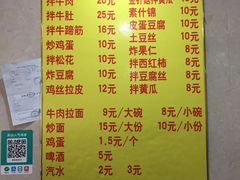 拌牛肉 20元
拌牛肚 25元
拌牛蹄筋 16元
炒鸡蛋 10元
拌松花 10元
炸豆腐 10元
鸡丝拉皮 12元
金针菇拌黄瓜 10元
素什锦 10元
皮蛋豆腐 10元
土豆丝 10元
炸果仁 8元
拌西红柿 8元
拌豆腐丝 8元
拌黄瓜 8元
牛肉拉面 9元/大碗 8元/小碗
炒面 15元/大份 10元/小份
鸡蛋 1.5元/个
啤酒 5元
汽水 2元 3元